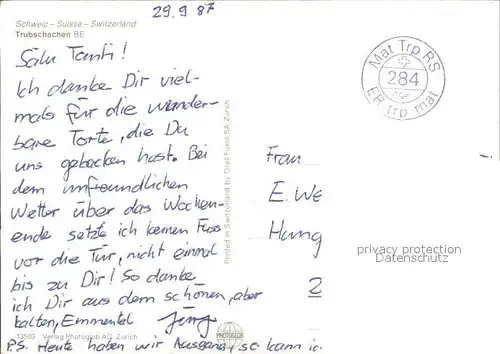 29.9.87
Schweiz – Suisse – Switzerland
Trubschachen BE
Salü Tanti!
Ich danke Dir viel-
mals für die wunder-
bare Torte, die Du
uns gebacken hast. Bei
dem unfreundlichen
Wetter über das Wochen-
ende setzte ich keinen Fuss
vor die Tür, nicht einmal
bis zu Dir! So danke
ich Dir aus dem schönen, aber
kalten, Emmental Jürg
P.S. Heute haben wir Ausgang, so kann ic
13503 Verlag Photoglob AG, Zürich
Printed in Switzerland by Orell Füssli SA Zürich
PHOTOGLOB
Mat Trp RS
284
ER trp mat
Frau
E. We
Hung
2
privacy protection
Datenschutz